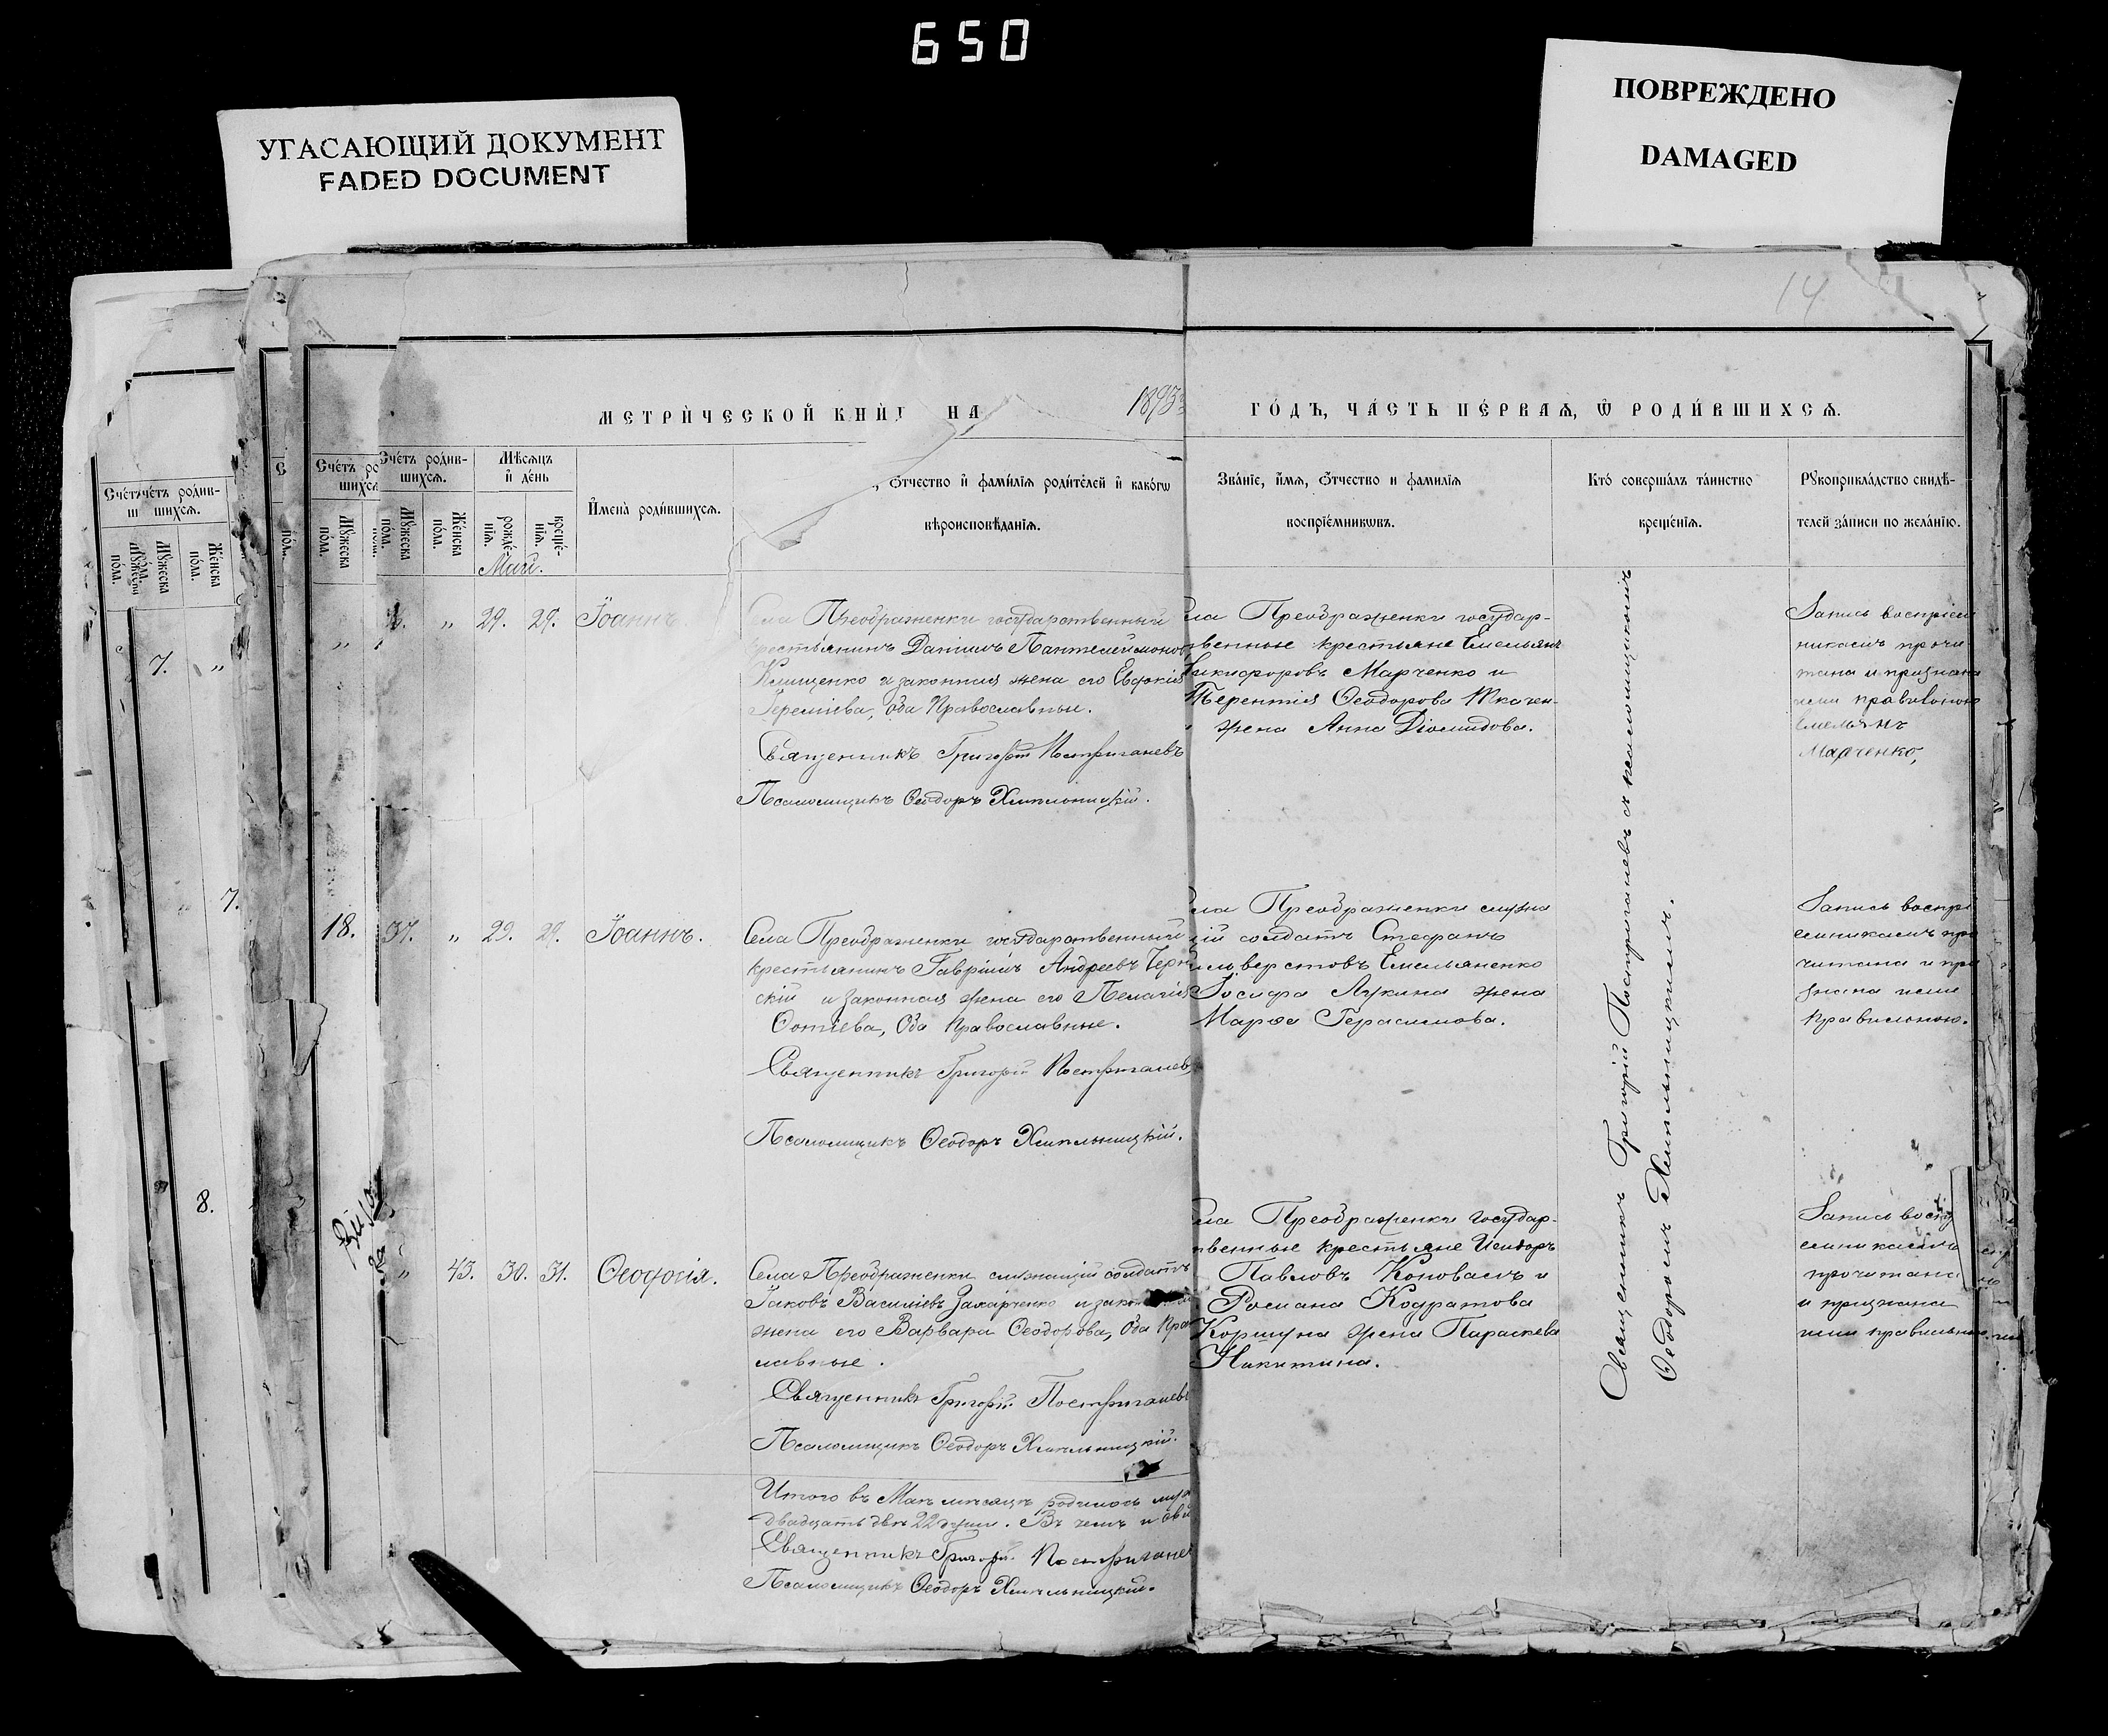 650
УГАСАЮЩИЙ ДОКУМЕНТ
FADED DOCUMENT
ПОВРЕЖДЕНО
DAMAGED
14
МЕТРИ́ЧЕСКОЙ КНИ́Г НА 1893 ГО́ДЪ, ЧА́СТЬ ПЕ́РВАѦ, Ѡ РОДИ́ВШИХСѦ.
Сче́тъ роди́в-
шихсѧ.
Мꙋ́жеска по́ла.
Же́нска по́ла.
Мѣ́сѧцъ и҆ де́нь
рожде́-
нїѧ.
креще́-
нїѧ.
И҆мена̀ роди́вшихсѧ.
, ѻ҆́тчество и҆ фами́лїѧ роди́телей и҆ како́гѡ
вѣроисповѣ́данїѧ.
Зва́нїе, и҆́мѧ, ѻ҆́тчество и фамилїѧ
воспрїе́мникѡвъ.
Кто́ соверша́лъ та́инство
креще́нїѧ.
Рꙋкоприкла́дство свидѣ́-
телей за́писи по жела́нїю.
Май.
„ 29. 29. Іоаннъ.
Села Преображенки государственный
крестьянинъ Даніилъ Пантелеймоновъ
Клищенко и законная жена его Евфокія
Іереміева, оба православные.
Священникъ Григорій Постригачевъ
Псаломщикъ Ѳеодоръ Хмельницкій.
ела Преображенки государ-
твенные крестьяне Емельянъ
Никифоровъ Марченко и
Терентія Ѳеодорова Ткачен-
жена Анна Діомидова.
Запись воспріем
никамъ прочи
тана и признана
ими правильною
Емельянъ
Марченко,
7. „
7.
18. 37. „ 29. 29. Іоаннъ.
Села Преображенки государственный
крестьянинъ Гавріилъ Андреевъ Черн
скій и законная жена его Пелагія
Фотіева, оба православные.
Священникъ Григорій Постригачевъ
Псаломщикъ Ѳеодоръ Хмельницкій.
ела Преображенки служа
щій солдатъ Стефанъ
Сильверстовъ Емельяненко
Іосифа Лукина жена
Марѳа Герасимова.
Запись воспрі
емникамъ про
читана и при
знана ими
правильною.
8.
„ 43. 30. 31. Ѳеодосія.
Села Преображенки служащій солдатъ
Іаковъ Василіевъ Захарченко и закон
жена его Варвара Ѳеодорова, оба пра
лавные.
Священникъ Григорій Постригачевъ
Псаломщикъ Ѳеодоръ Хмельницкій.
ела Преображенки государ-
твенные крестьяне Исидоръ
Павловъ Коновалъ и
Романа Кодратова
Коршуна жена Параскева
Никитина.
Запись воспрі
емникамъ
прочитана
и признана
ими правильною.
Священникъ Григорій Постригачевъ съ псаломщикомъ
Ѳеодоромъ Хмельницкимъ.
Итого въ Маѣ мѣсяцѣ родилось муж
двадцать двѣ 22 души. Въ чемъ и сви
Священникъ Григорій Постригачевъ
Псаломщикъ Ѳеодоръ Хмельницкій.